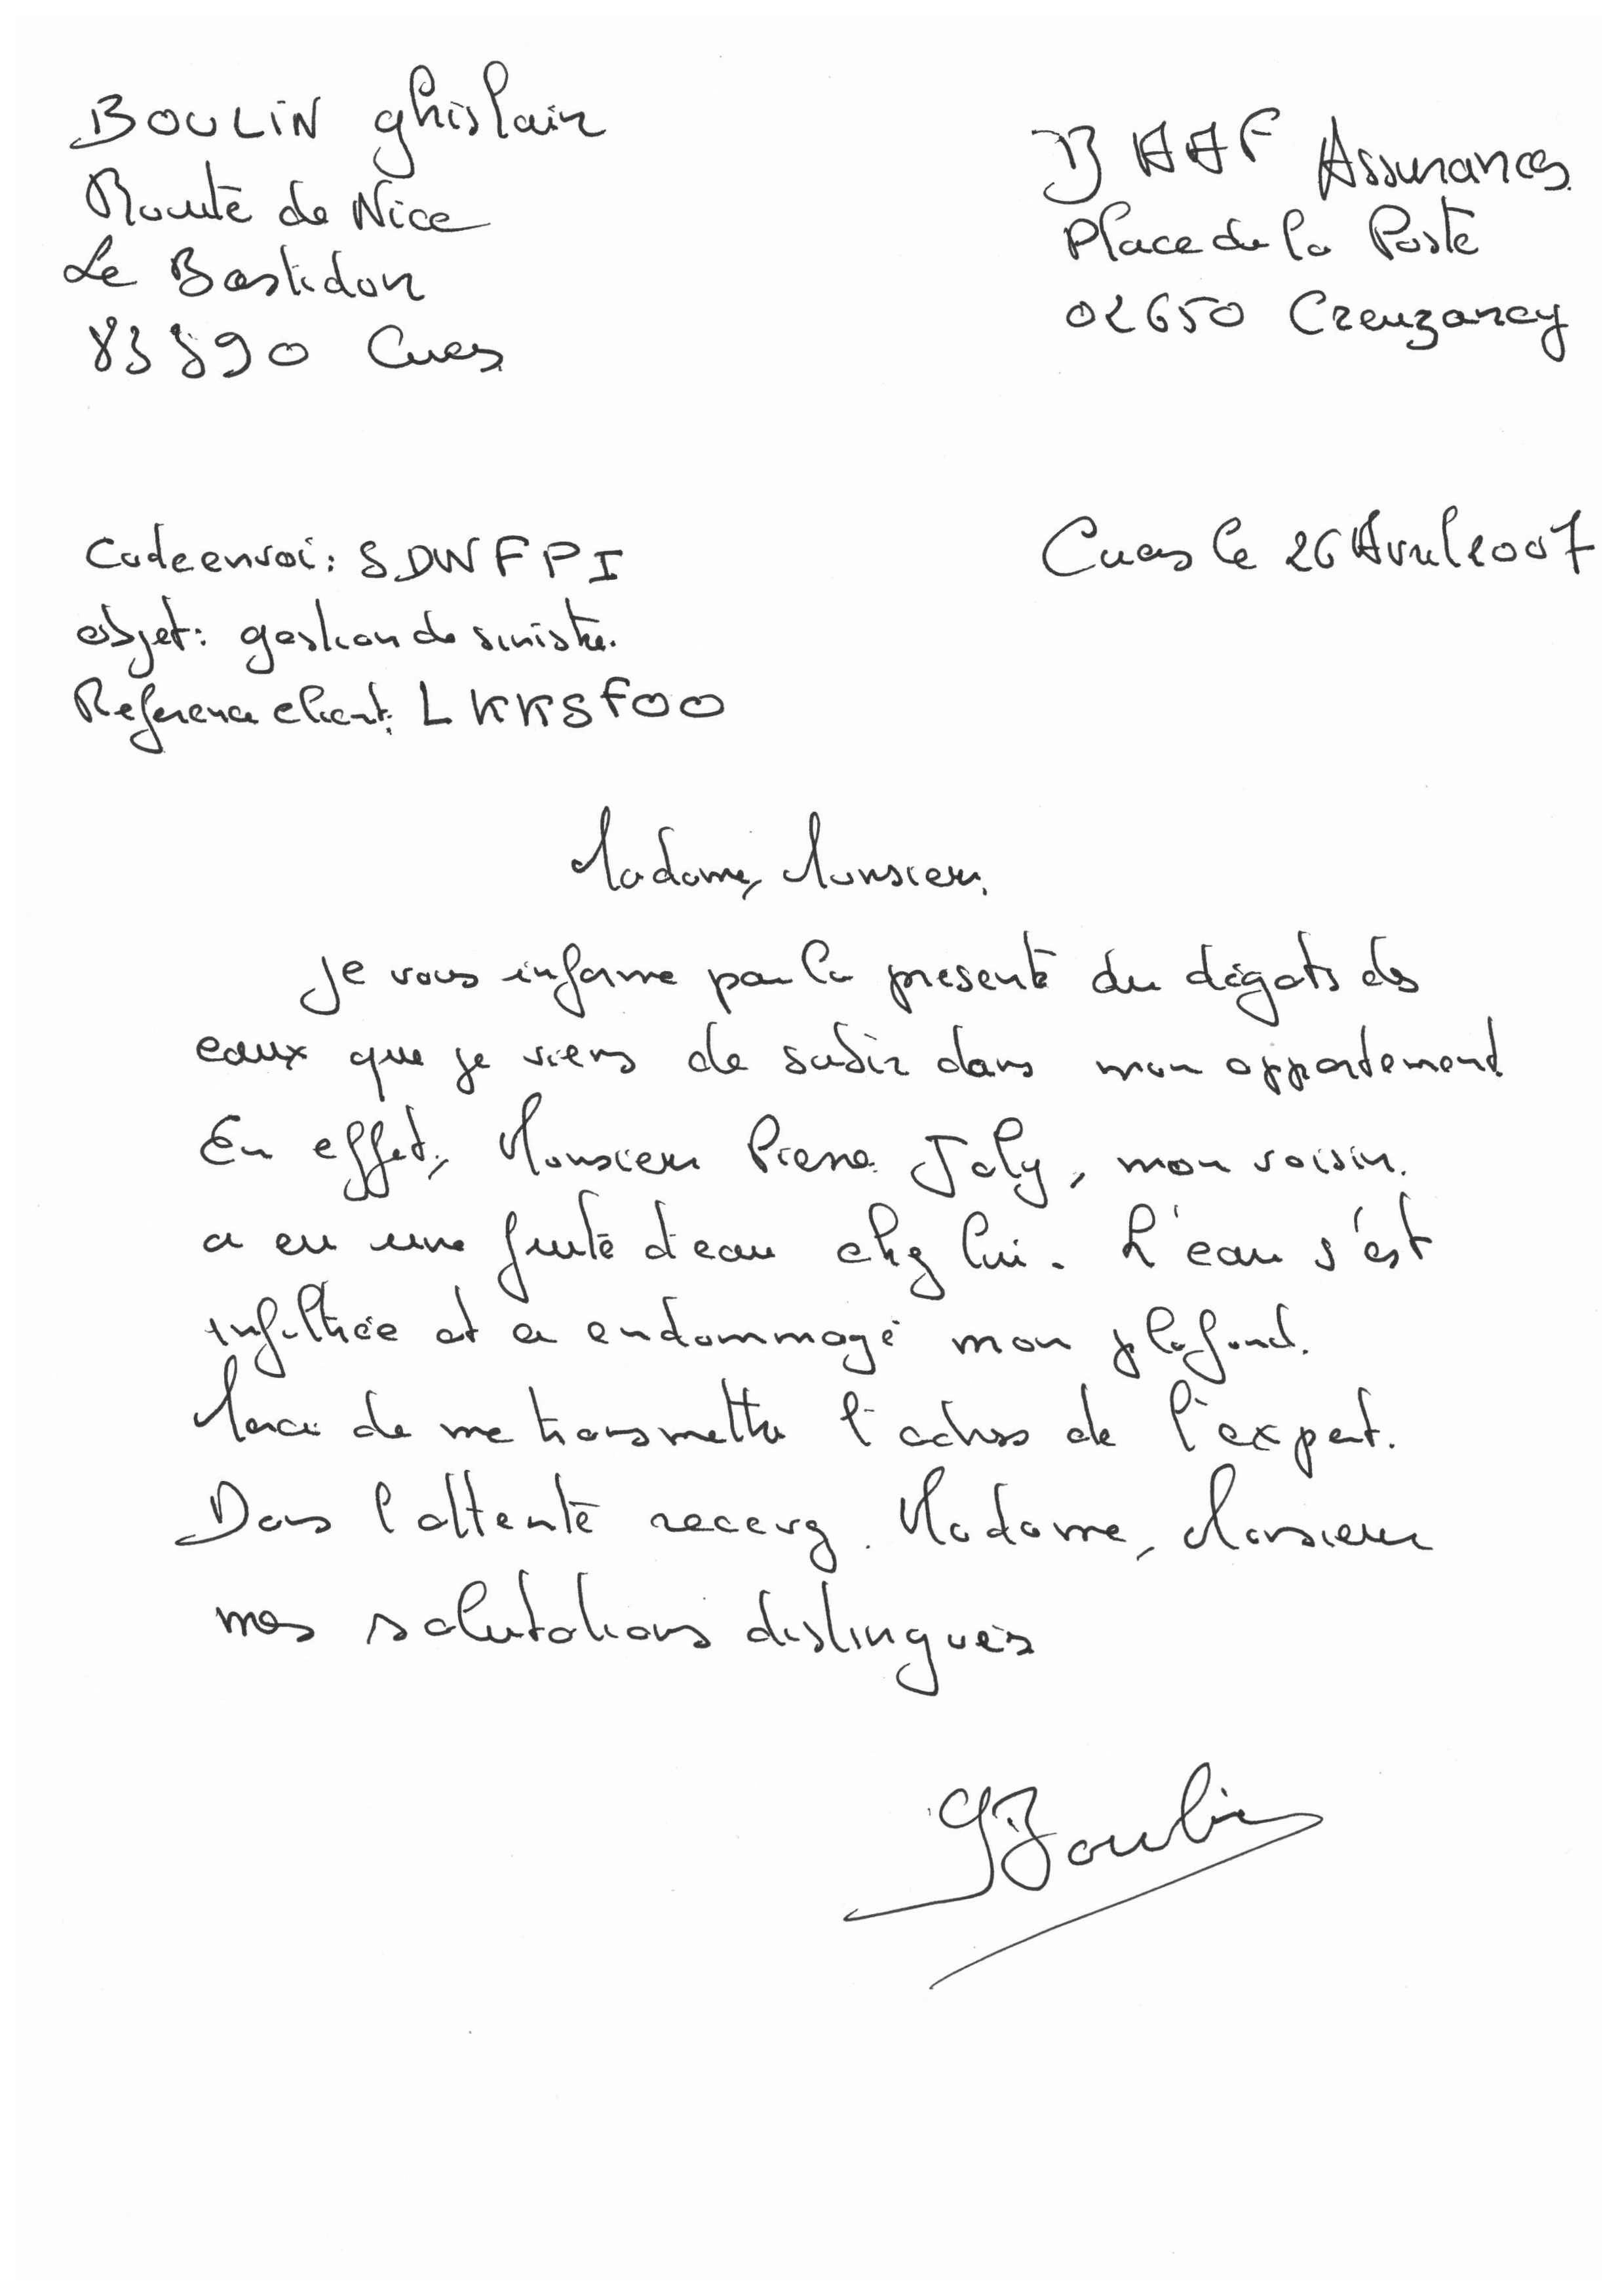 BOULIN ghislain
Route de Nice
Le Bastidon
83390 Cuers
BAAF Assurances
Place de la Poste
02650 Crezancy
Code envoi : SDWFPI
Cuers le 26 Avril 2007
objet : gestion de sinistre.
Reference client : LKKSF00
Madame, Monsieur,
Je vous informe par la presente du dégats des
eaux que je viens de subir dans mon appartement.
En effet, Monsieur Pierre Joly, mon voisin.
a eu une fuite d'eau chez lui. L'eau s'est
infiltrée et a endommagé mon plafond.
Merci de me transmettre l'adresse de l'expert.
Dans l'attente recevez. Madame, Monsieur
mes salutations distingués
G Boulin